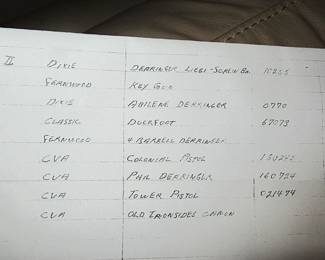 II DIXIE DERRINGER LIEGI-SCREW BA.
FERNWOOD KEY GUN
DIXIE ABILENE DERRINGER 0770
CLASSIC DUCKFOOT 67073
FERNWOOD 4 BARRELL DERRINGER
CVA COLONIAL PISTOL
CVA PHIL DERRINGER 160724
CVA TOWER PISTOL 021474
CVA OLD IRONSIDES CANNON